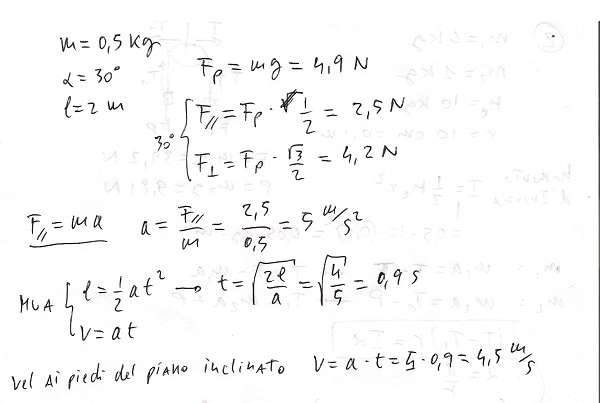 m = 0,5 Kg
α = 30°
l = 2 m
Fp = mg = 4,9 N
30° { F// = Fp · 1/2 = 2,5 N
F⊥ = Fp · √3/2 = 4,2 N
F// = ma a = F///m = 2,5/0,5 = 5 m/s²
MUA { l = 1/2 at² → t = √(2l/a) = √(4/5) = 0,9 s
v = at
vel ai piedi del piano inclinato v = a · t = 5 · 0,9 = 4,5 m/s